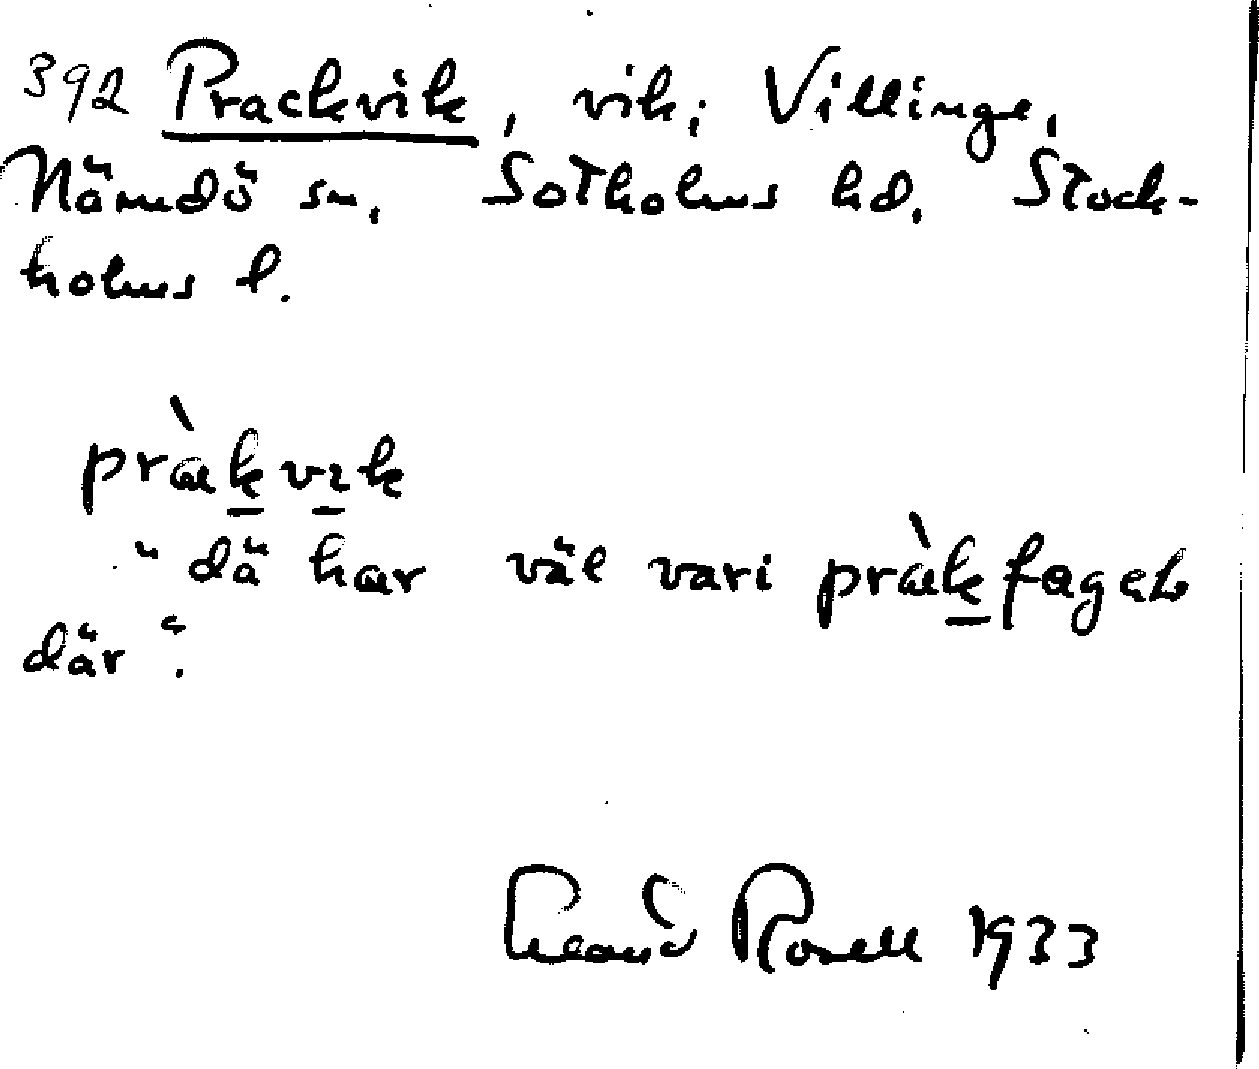 392 Prackvik, vik; Villinge,
Nämdö sn, Sotholms hd, Stock-
holms l.
pràkvik
"dä har väl vari pràkfageb
där".
Rosell 1933